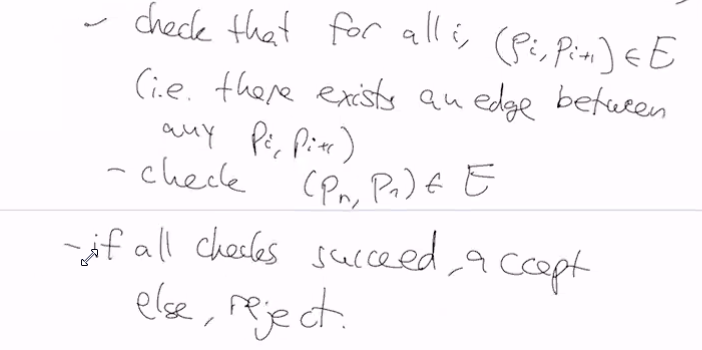 - check that for all i, (pi, pi+1) ∈ E
(i.e. there exists an edge between
any pi, pi+1)
- check (pn, p1) ∈ E
- if all checks succeed, accept
else, reject.